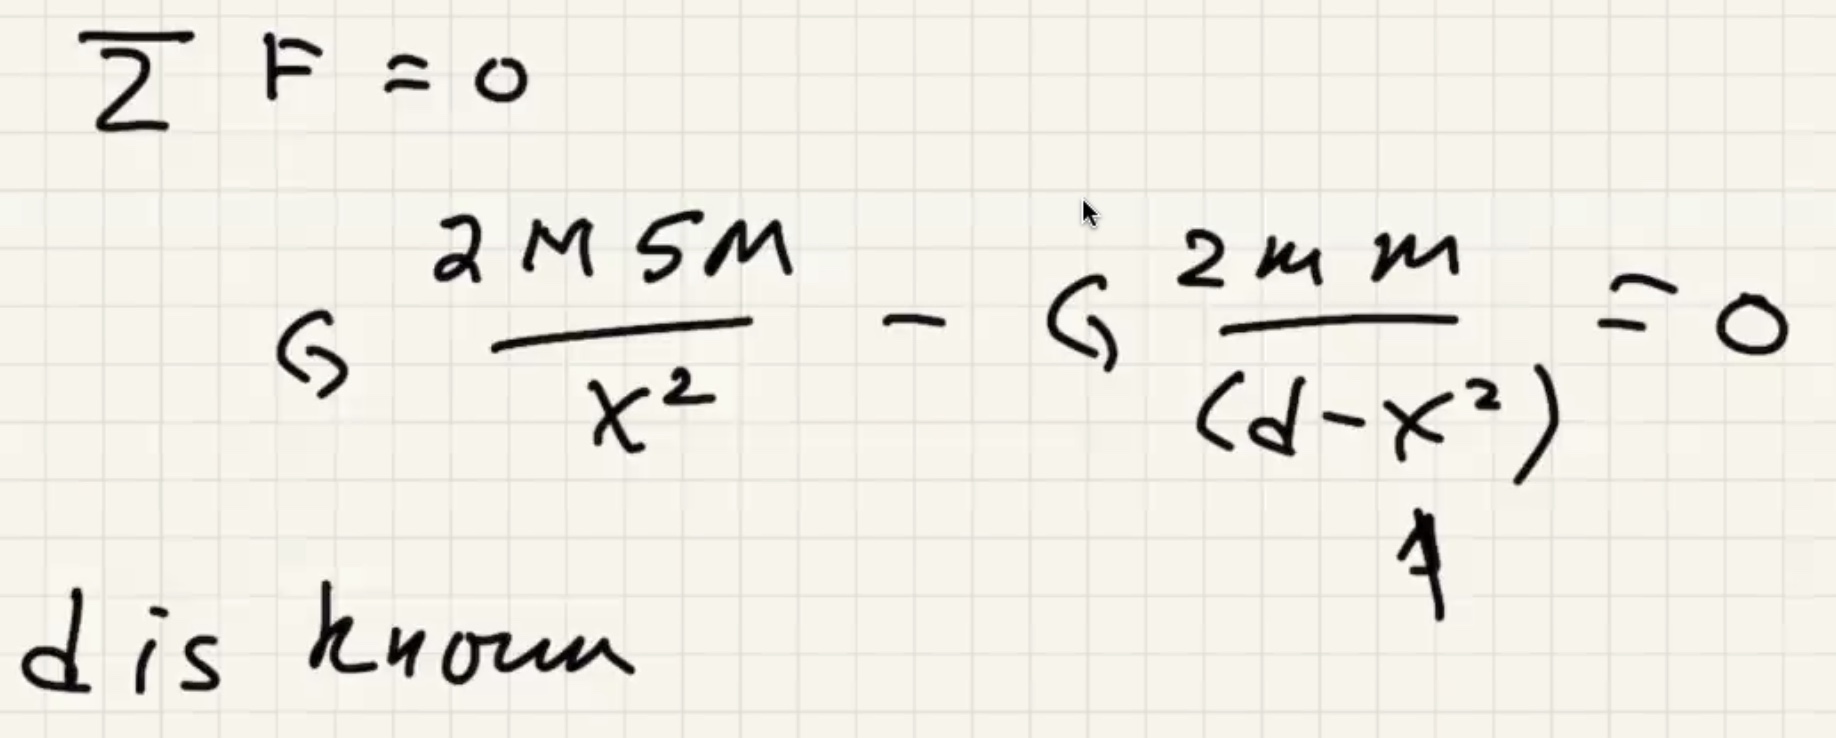 Σ F = 0
G 2M5M/x² - G 2mm/(d-x²) = 0
d is known